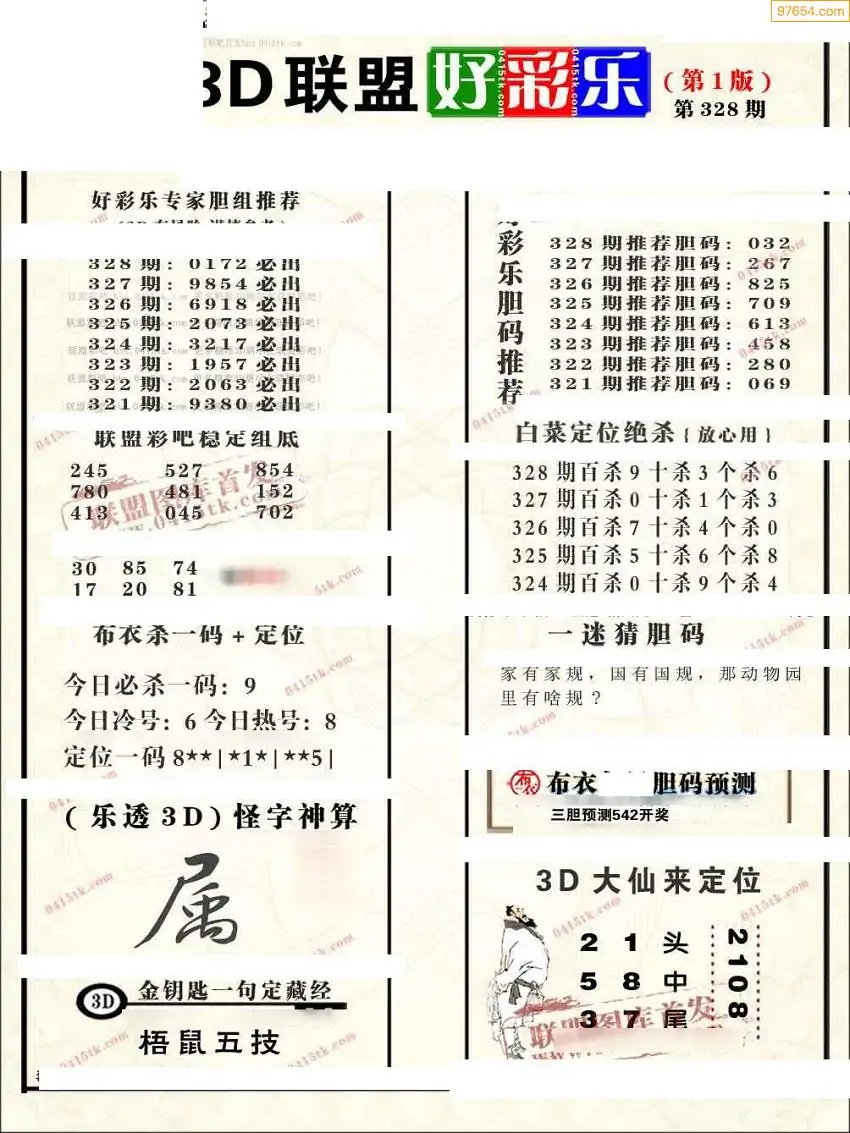 97654.com
3D联盟好彩乐(第1版)
第328期
好彩乐专家胆组推荐
328期：0172必出
327期：9854必出
326期：6918必出
325期：2073必出
324期：3217必出
323期：1957必出
322期：2063必出
321期：9380必出
联盟彩吧稳定组底
245 527 854
780 481 152
413 045 702
30 85 74
17 20 81
布衣杀一码+定位
今日必杀一码：9
今日冷号：6今日热号：8
定位一码8**|*1*|**5|
(乐透3D)怪字神算
属
3D 金钥匙一句定藏经
梧鼠五技
彩乐胆码推荐
328期推荐胆码：032
327期推荐胆码：267
326期推荐胆码：825
325期推荐胆码：709
324期推荐胆码：613
323期推荐胆码：458
322期推荐胆码：280
321期推荐胆码：069
白菜定位绝杀{放心用}
328期百杀9十杀3个杀6
327期百杀0十杀1个杀3
326期百杀7十杀4个杀0
325期百杀5十杀6个杀8
324期百杀0十杀9个杀4
一迷猜胆码
家有家规，国有国规，那动物园
里有啥规？
布衣 胆码预测
三胆预测542开奖
3D大仙来定位
2 1 头
5 8 中
3 7 尾
2108
联盟图库首发
www.0415tk.com
0415tk.com